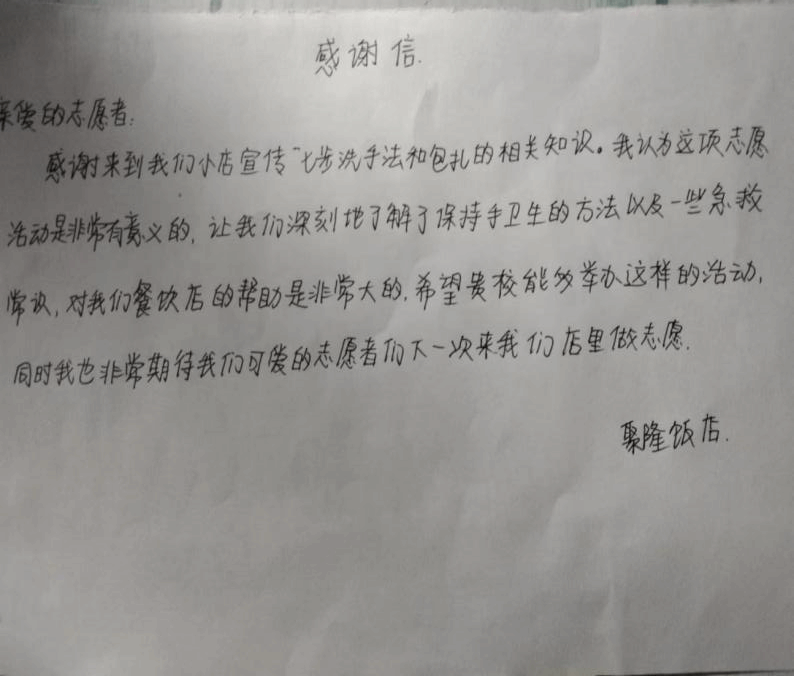 感谢信.
亲爱的志愿者:
感谢来到我们小店宣传七步洗手法和包扎的相关知识。我认为这项志愿
活动是非常有意义的, 让我们深刻地了解了保持手卫生的方法以及一些急救
常识, 对我们餐饮店的帮助是非常大的. 希望贵校能多举办这样的活动,
同时我也非常期待我们可爱的志愿者们下一次来我们店里做志愿.
聚隆饭店.